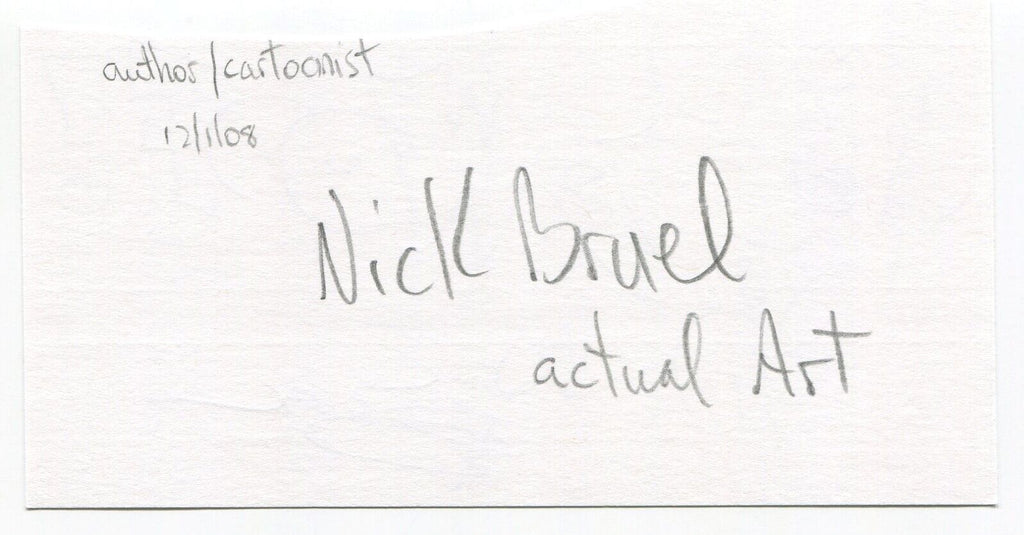 author/cartoonist
12/1/08
Nick Bruel
actual Art